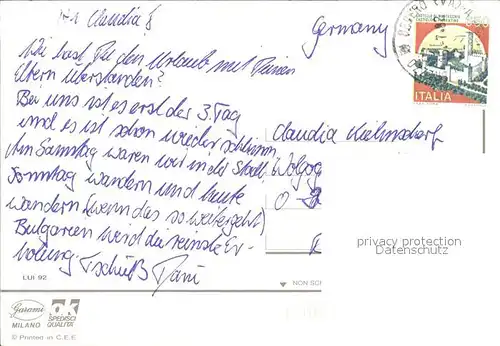 Claudia!
Germany
Wie hast Du den Urlaub mit Deinen
Eltern überstanden?
Bei uns ist es erst der 3. Tag
und es ist schon wieder schlimm.
Am Samstag waren wir in der Stadt,
Sonntag wandern und heute
wandern (wenn das so weitergeht)
Bulgarien wird die reinste Er-
holung. Tschüß
Claudia
O-
ITALIA
privacy protection
Datenschutz
LUI 92
NON SC
Garami
MILANO
ak
SPEDISCI
QUALITA'
© Printed in C.E.E.